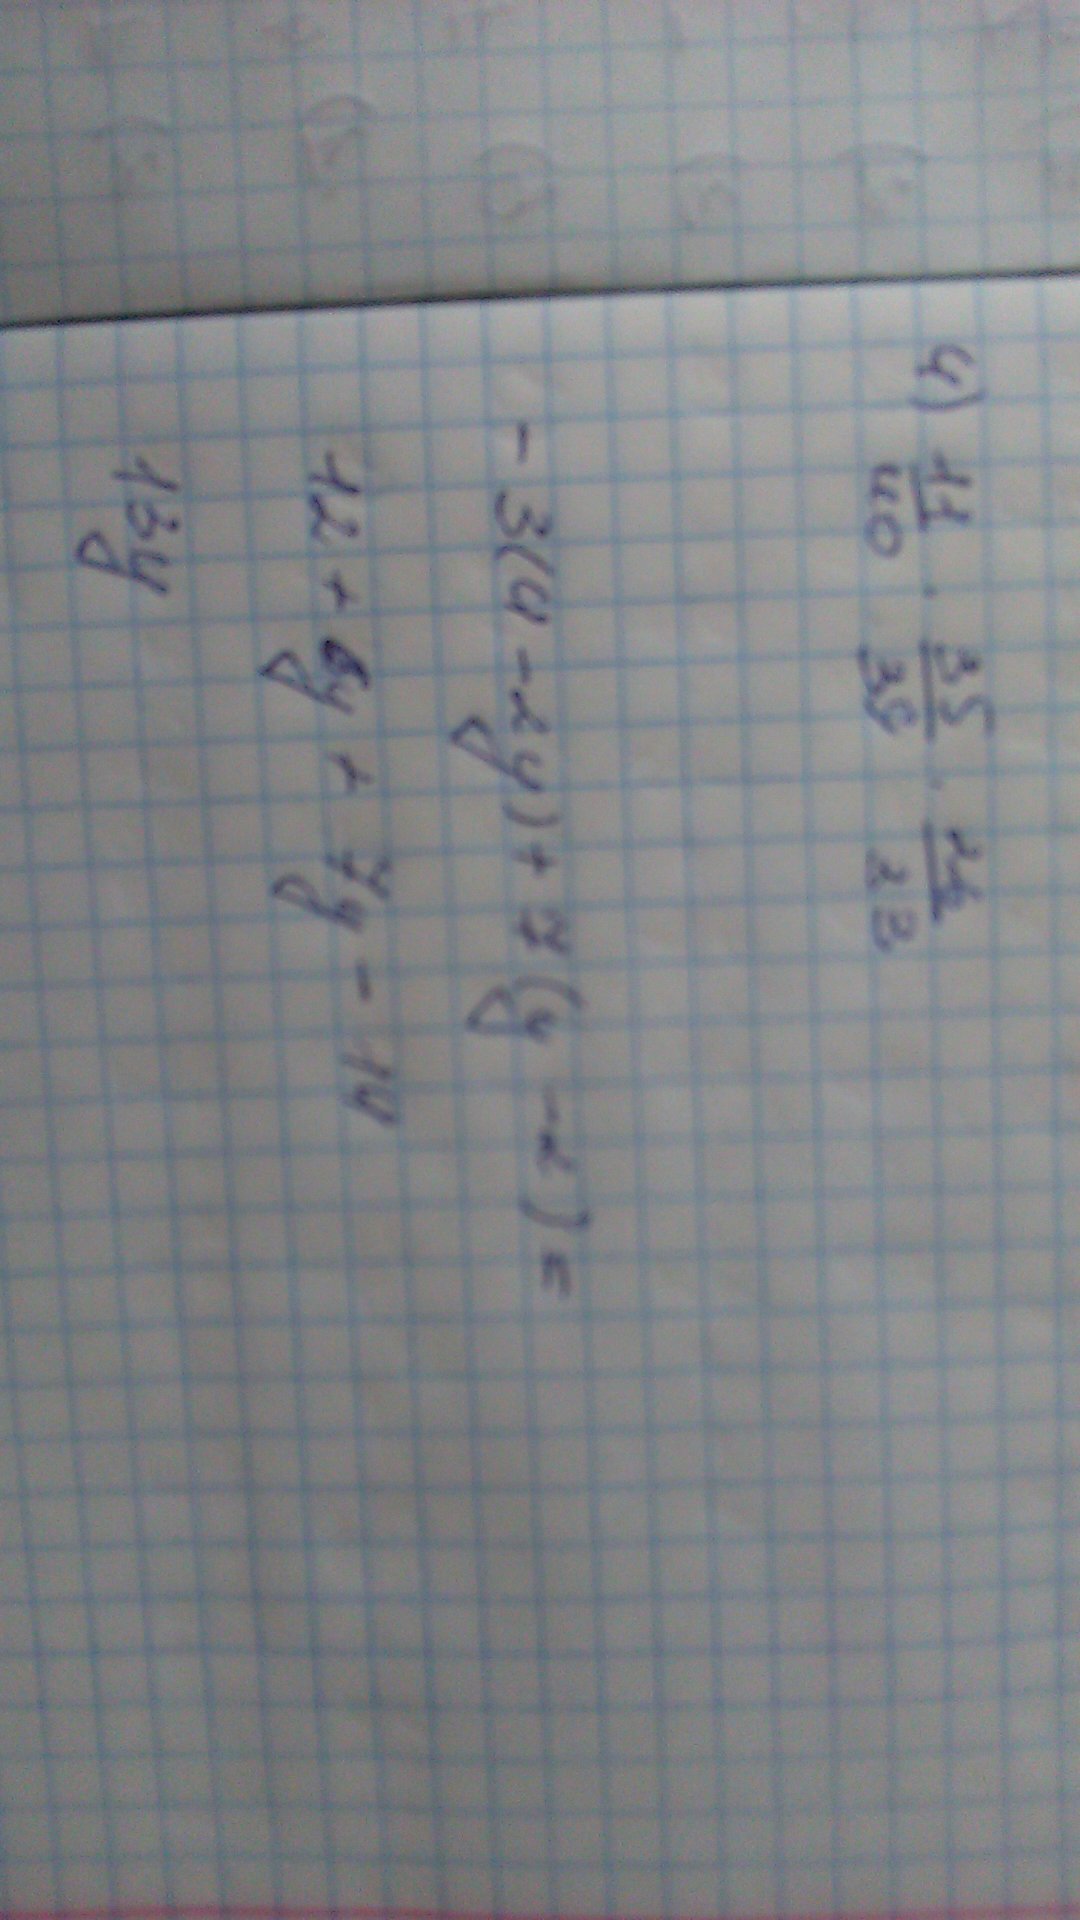 4) 11/40 · 35/35 · 26/22
- 3(4 - 2y) + 7(y - 2) =
12 + 6y + 7y - 14
13y